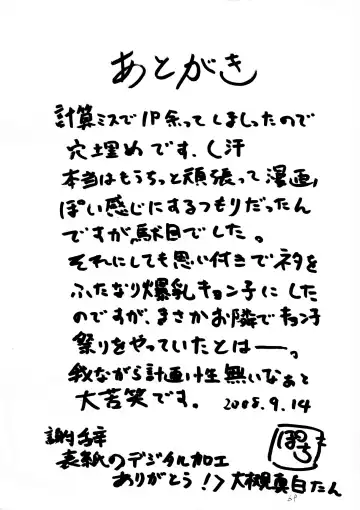 あとがき
計算ミスで1P余ってしまったので
穴埋めです、(汗
本当はもうちっと頑張って漫画っ
ぽい感じにするつもりだったん
ですが駄目でした。
それにしても思い付きでネタを
ふたなり爆乳キョン子にした
のですが、まさかお隣でキョン子
祭りをやっていたとは──。
我ながら計画性無いなぁと
大苦笑です。 2008.9.14
謝辞
表紙のデジタル加工
ありがとう!>大槻真白たん
ぽち